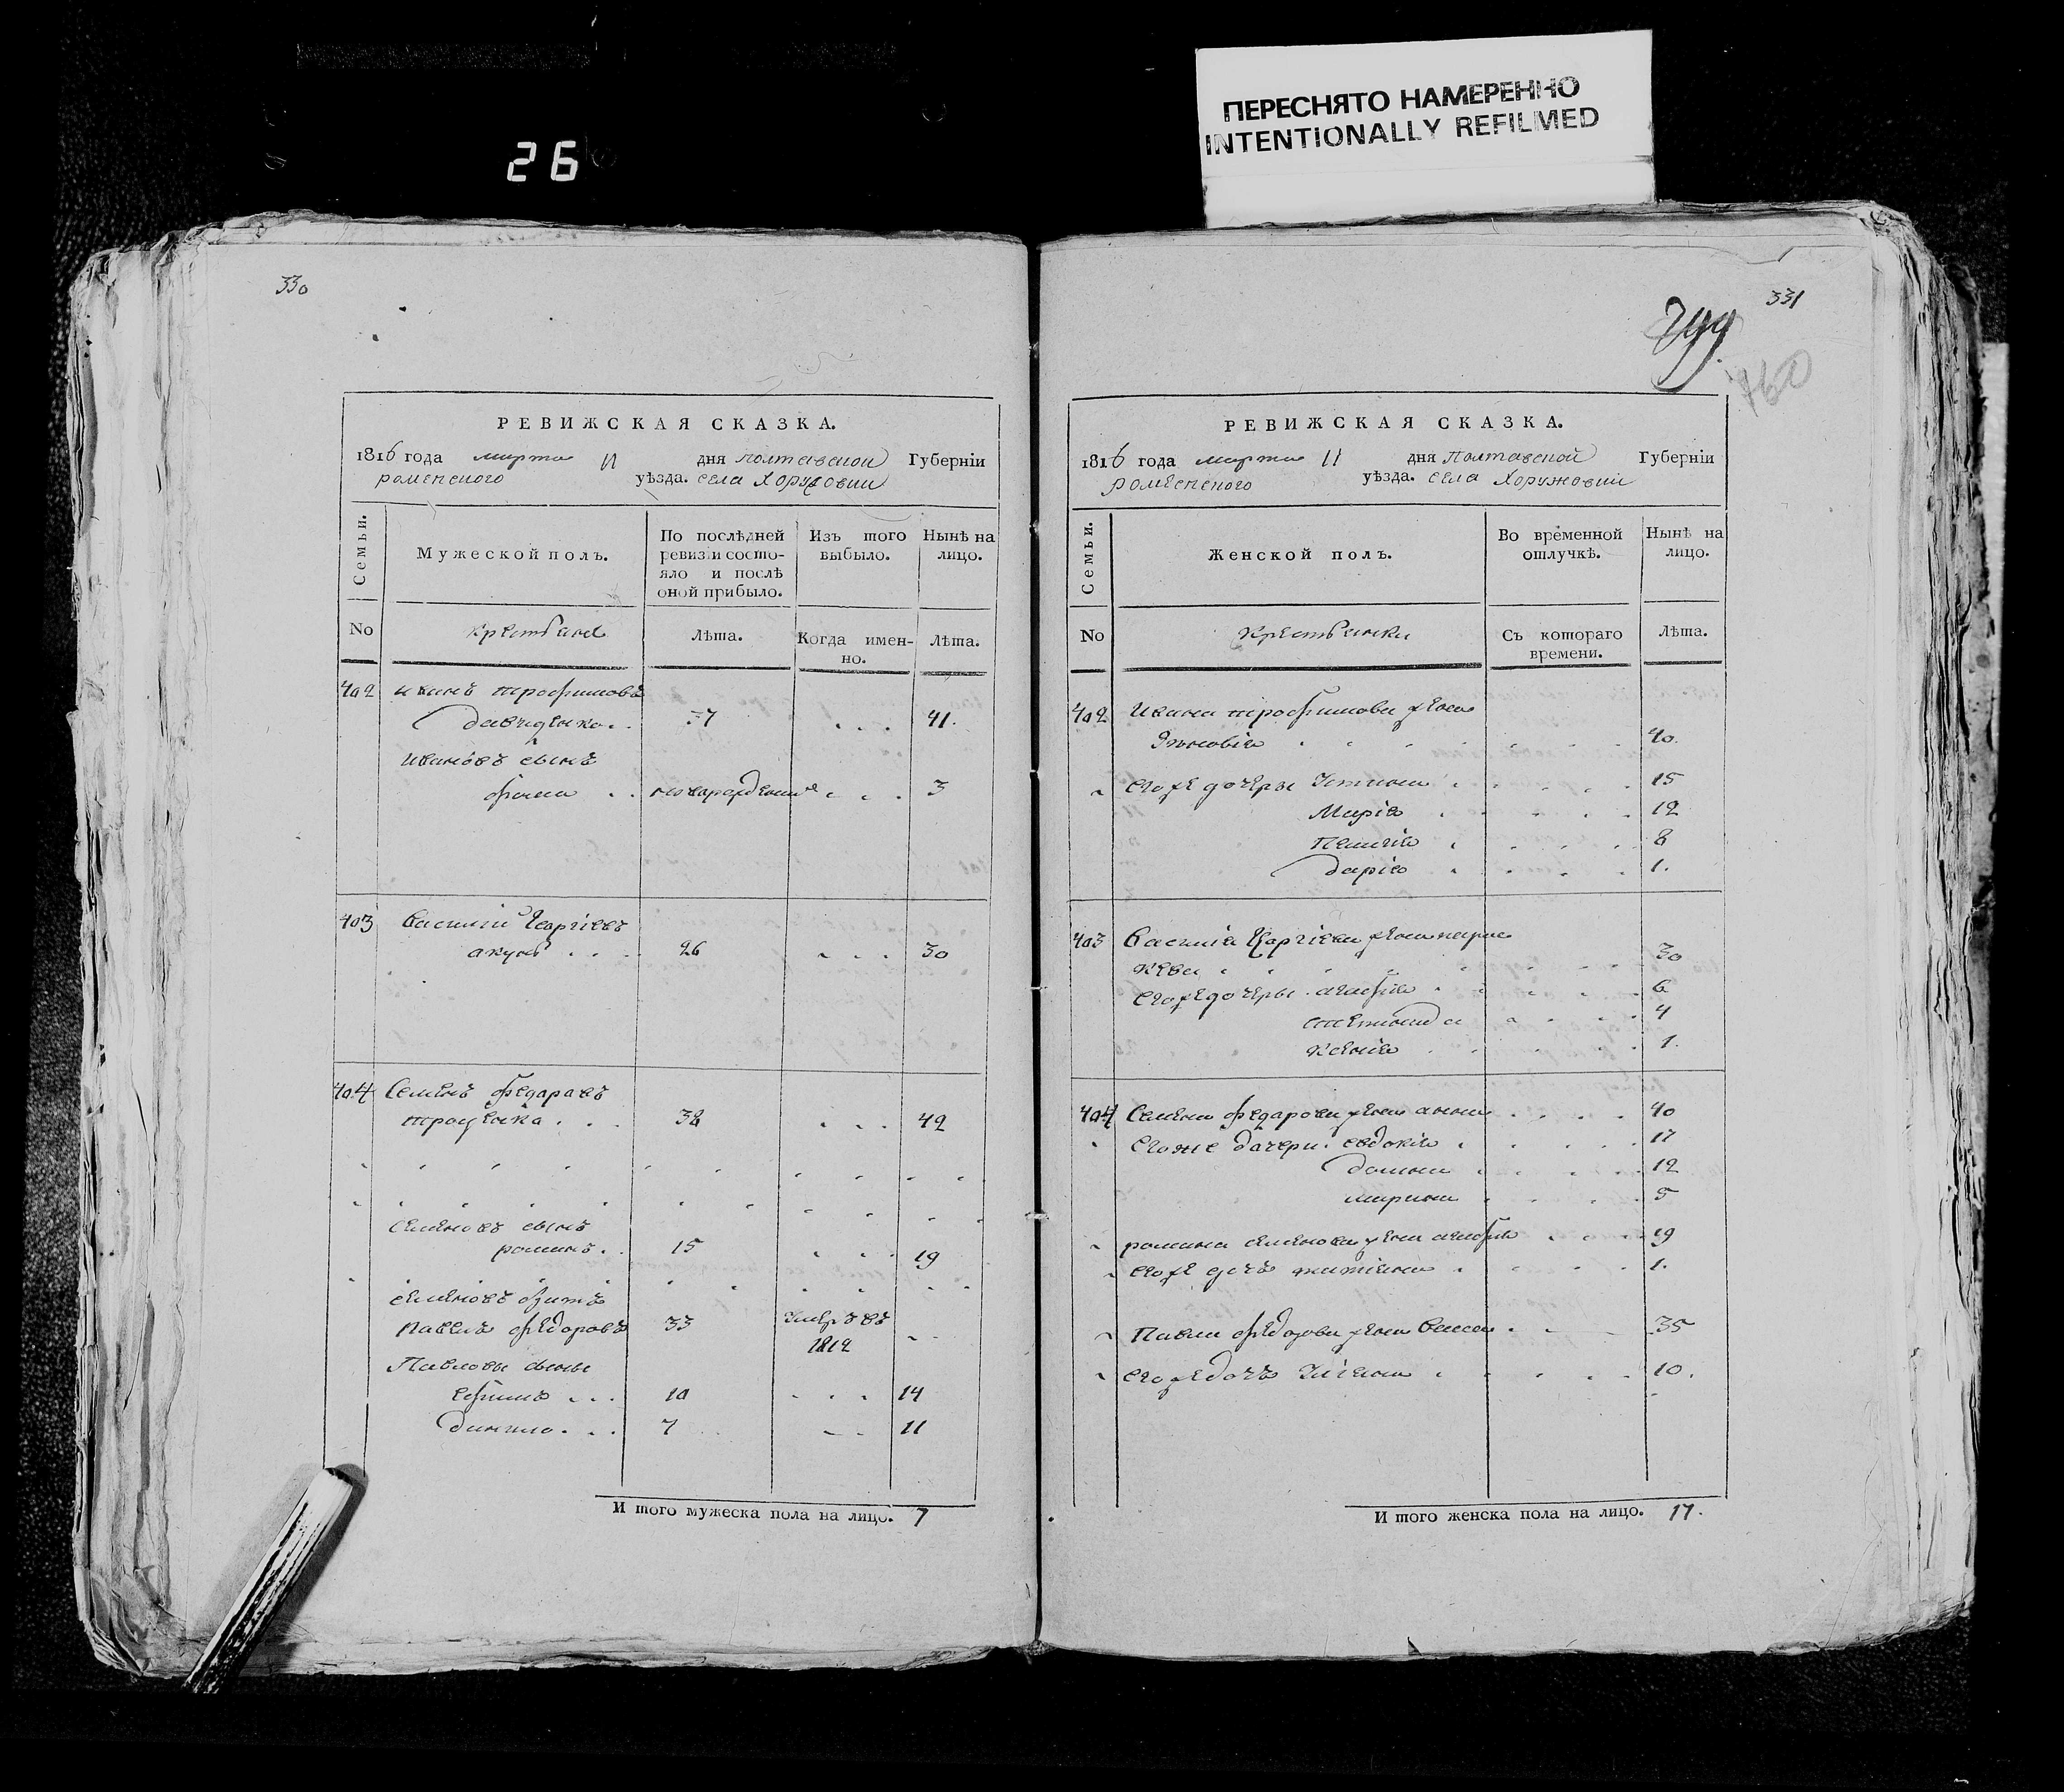 ПЕРЕСНЯТО НАМЕРЕННО
INTENTIONALLY REFILMED
26
330
РЕВИЖСКАЯ СКАЗКА.
1816 года марта 11 дня полтавской Губерніи
роменского уѣзда. села Хоружовки
Семьи. Мужеской полъ. По послѣдней ревизіи состояло и послѣ оной прибыло. Изъ того выбыло. Нынѣ на лицо.
No крестьяне Лѣта. Когда именно. Лѣта.
402 иванъ трофимовъ
давиденко . . 37 . . . 41.
ивановъ сынъ
фома . . новорожденные . . . 3
403 Василий Георгіевъ
акунъ . . . . 26 . . . 30
404 Семенъ федаравъ
троценка . . . 38 . . . 42
семеновъ сынъ
романъ . . 15 . . . 19
семеновъ братъ
павелъ федоровъ 33 Умеръ въ 1812 - -
Павловы сыны
Ефимъ . . . 10 . . . 14
данило . . . 7 - - 11
И того мужеска пола на лицо. 7
331
299
760
РЕВИЖСКАЯ СКАЗКА.
1816 года марта 11 дня Полтавской Губерніи
роменского уѣзда. села Хоружовки
Семьи. Женской полъ. Во временной отлучкѣ. Нынѣ на лицо.
No крестьянки Съ котораго времени. Лѣта.
402 Ивана трофимова жена
Зѣновія . . . . . . . 40.
Егоже дочеры Устина . . . . . 15
Марія . . . . . 12
Пелагія . . . . . 8
дарія . . . . . 1.
403 Василія Георгіева жена параскева . . . . . . . 30
Егоже дочеры . агафія . . . . . 6
степанида . . . . 4
Ксенія . . . . . 1.
404 Семена федарова жена анна . . . . 40
Егоже дачери . евдокія . . . . . 17
домна . . . . . 12
марина . . . . 5
романа семенова жена агафія . . . 19
Егоже дочъ татіана . . . . 1.
Павла федорова жена васса . . - 35
Егоже дочъ Уліана . . . . . 10.
И того женска пола на лицо. 17.